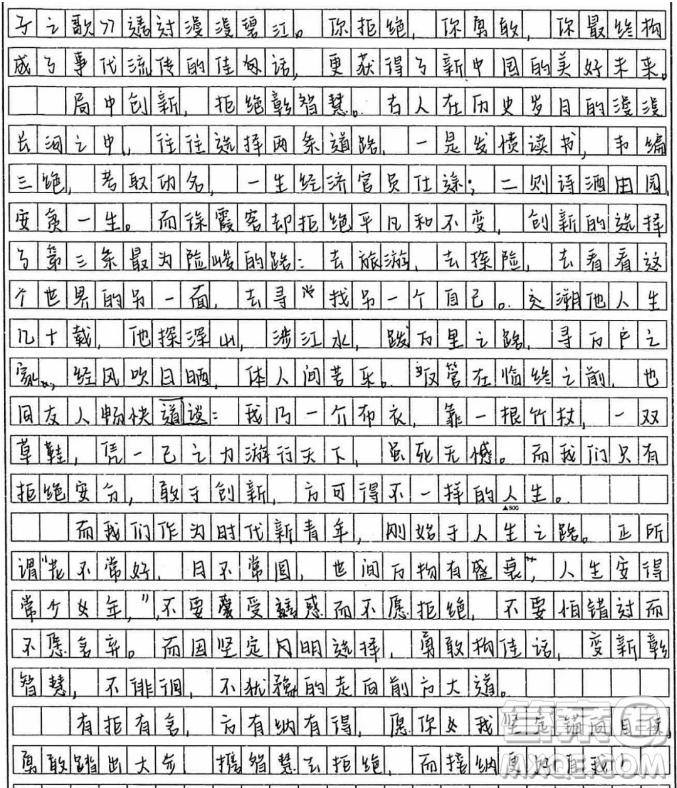 子之歌》透过漫漫碧江。你拒绝，你勇敢，你最终构
成了事代流传的佳句话，更获得了新中国的美好未来。
局中创新，拒绝彰智慧。古人在历史岁月的漫漫
长河之中，往往选择两条道路，一是发愤读书，韦编
三绝，考取功名，一生经济官员仕途；二则诗酒田园，
安负一生。而徐霞客却拒绝平凡和不变，创新的选择
了第三条最为险峻的路：去旅游，去探险，去看看这
个世界的另一面，去寻找另一个自己。交溯他人生
几十载，他探深山，涉江水，跋万里之路，寻万户之
家，经风吹日晒，体人间苦乐。尽管在临终之前，也
同友人畅快道谈：我乃一个布衣，靠一根竹杖，一双
草鞋，凭一己之力游行天下，虽死无憾。而我们只有
拒绝安分，敢于创新，方可得不一样的人生。
▲800
而我们作为时代新青年，刚始于人生之路。正所
谓“花不常好，月不常圆，世间万物有盛衰”，人生安得
常少女年，”不要受诱惑而不愿拒绝，不要怕错过而
不愿舍弃。而因坚定闪明选择，勇敢构佳话，变新彰
智慧，不徘徊，不犹豫的走向前方大道。
有拒有舍，方有纳有得，愿你我坚定锚向目标，
勇敢踏出大步，携智慧去拒绝，而接纳
答案圈
MXQE.COM